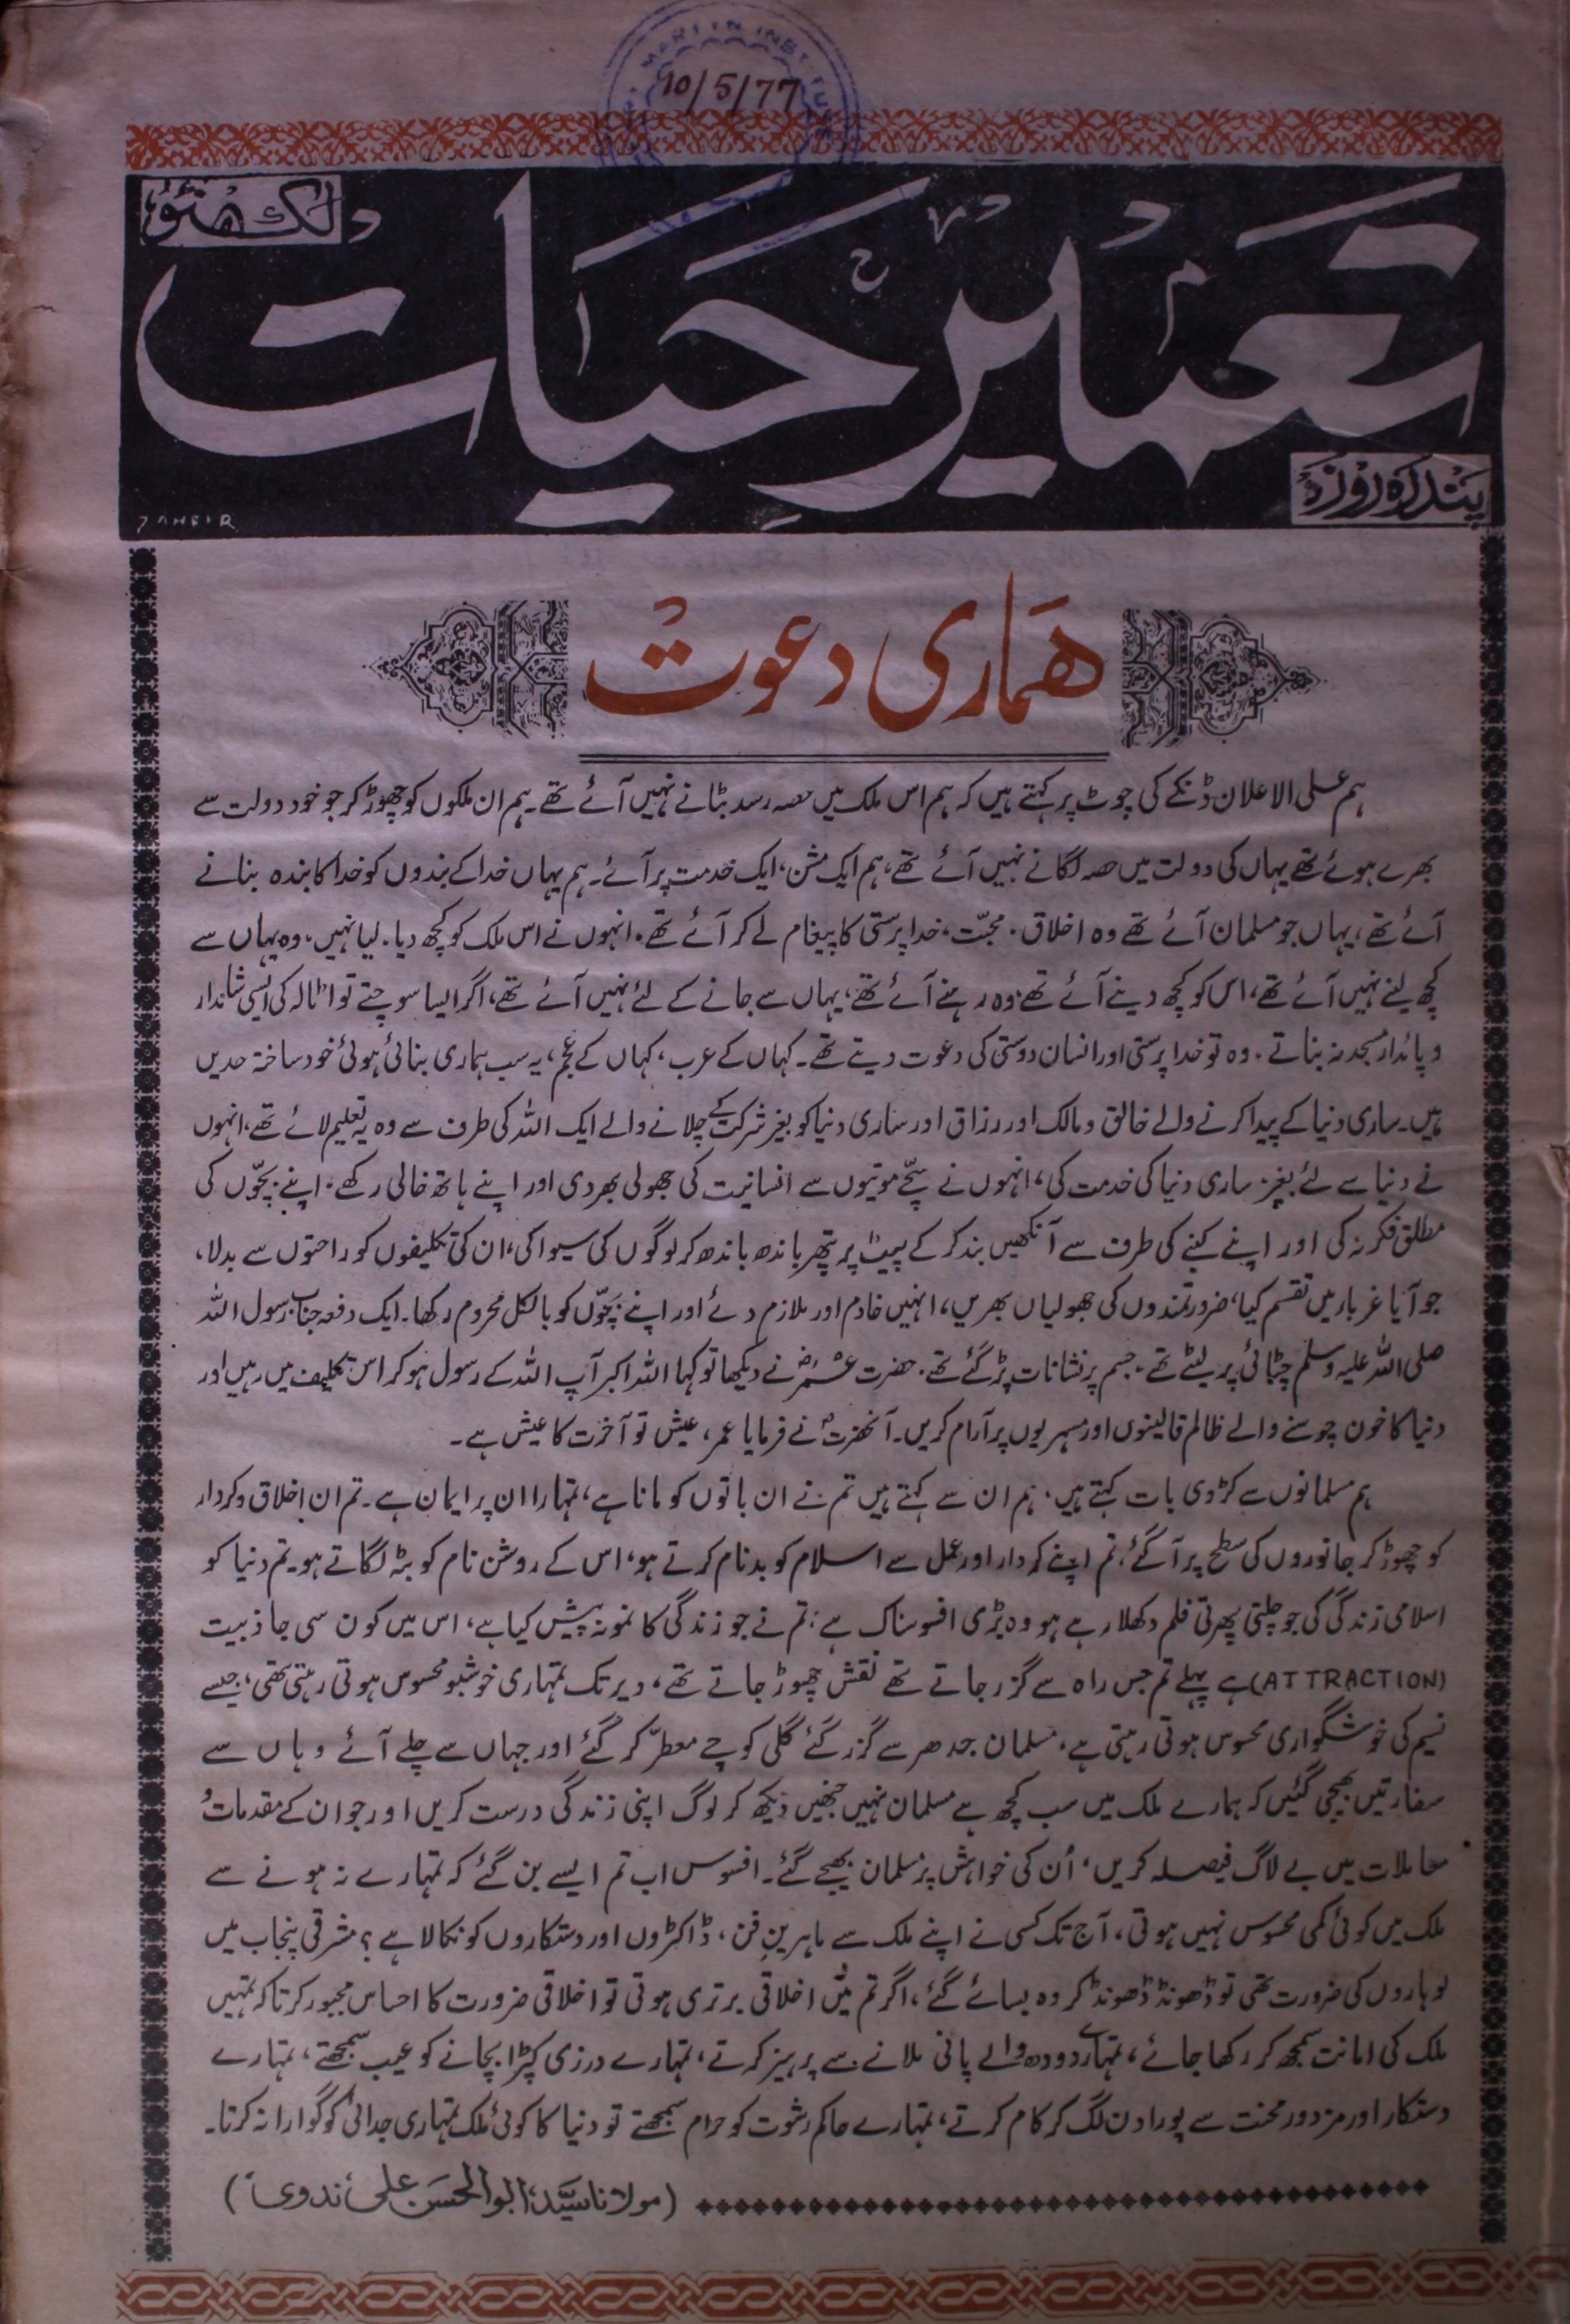 10/5/77
لکھنؤ
تعمیر حیات
پندرہ روزہ
ہماری دعوت
ہم علی الاعلان ڈنکے کی چوٹ پر کہتے ہیں کہ ہم اس ملک میں حصہ رسد بٹانے نہیں آئے تھے۔ ہم ان ملکوں کو چھوڑ کر جو خود دولت سے
بھرے ہوئے تھے یہاں کی دولت میں حصہ لگانے نہیں آئے تھے، ہم ایک مشن، ایک خدمت پر آئے۔ ہم یہاں خدا کے بندوں کو خدا کا بندہ بنانے
آئے تھے، یہاں جو مسلمان آئے تھے وہ اخلاق۔ محبّت، خدا پرستی کا پیغام لے کر آئے تھے۔ انہوں نے اس ملک کو کچھ دیا۔ لیا نہیں۔ وہ یہاں سے
کچھ لینے نہیں آئے تھے، اس کو کچھ دینے آئے تھے، وہ رہنے آئے تھے، یہاں سے جانے کے لئے نہیں آئے تھے، اگر ایسا سوچتے تو اٹالہ کی ایسی شاندار
و پائدار مسجد نہ بناتے۔ وہ تو خدا پرستی اور انسان دوستی کی دعوت دیتے تھے۔ کہاں کے عرب، کہاں کے عجم، یہ سب ہماری بنائی ہوئی خود ساختہ حدیں
ہیں۔ ساری دنیا کے پیدا کرنے والے خالق و مالک اور رزاق اور ساری دنیا کو بغیر شرکت کے چلانے والے ایک اللہ کی طرف سے وہ یہ تعلیم لائے تھے، انہوں
نے دنیا سے لئے بغیر ساری دنیا کی خدمت کی، انہوں نے سچّے موتیوں سے انسانیت کی جھولی بھر دی اور اپنے ہاتھ خالی رکھے۔ اپنے بچّوں کی
مطلق فکر نہ کی اور اپنے کنبے کی طرف سے آنکھیں بند کر کے پیٹ پر پتھر باندھ باندھ کر لوگوں کی سیوا کی، ان کی تکلیفوں کو راحتوں سے بدلا،
جو آیا غربا میں تقسیم کیا، ضرورتمندوں کی جھولیاں بھریں، انہیں خادم اور ملازم دئے اور اپنے بچّوں کو بالکل محروم رکھا۔ ایک دفعہ جناب رسول اللہ
صلی اللہ علیہ وسلم چٹائی پر لیٹے تھے۔ جسم پر نشانات پڑ گئے تھے۔ حضرت عمرؓ نے دیکھا تو کہا اللہ اکبر آپ اللہ کے رسول ہو کر اس تکلیف میں رہیں اور
دنیا کا خون چوسنے والے ظالم قالینوں اور مسہریوں پر آرام کریں۔ آنحضرتؐ نے فرمایا عمر، عیش تو آخرت کا عیش ہے۔
ہم مسلمانوں سے کڑوی بات کہتے ہیں۔ ہم ان سے کہتے ہیں تم نے ان باتوں کو مانا ہے، تمہارا ان پر ایمان ہے۔ تم ان اخلاق و کردار
کو چھوڑ کر جانوروں کی سطح پر آگئے، تم اپنے کردار اور عمل سے اسلام کو بدنام کرتے ہو، اس کے روشن نام کو بٹہ لگاتے ہو۔ تم دنیا کو
اسلامی زندگی کی جو چلتی پھرتی فلم دکھلا رہے ہو وہ بڑی افسوسناک ہے؛ تم نے جو زندگی کا نمونہ پیش کیا ہے، اس میں کون سی جاذبیت
(ATTRACTION) ہے پہلے تم جس راہ سے گزر جاتے تھے نقش چھوڑ جاتے تھے، دیر تک تمہاری خوشبو محسوس ہوتی رہتی تھی، جیسے
نسیم کی خوشگواری محسوس ہوتی رہتی ہے، مسلمان جدھر سے گزر گئے گلی کوچے معطّر کر گئے اور جہاں سے چلے آئے وہاں سے
سفارتیں بھیجی گئیں کہ ہمارے ملک میں سب کچھ ہے مسلمان نہیں جنھیں دیکھ کر لوگ اپنی زندگی درست کریں اور جو ان کے مقدمات و
معاملات میں بے لاگ فیصلہ کریں، اُن کی خواہش پر مسلمان بھیجے گئے۔ افسوس اب تم ایسے بن گئے کہ تمہارے نہ ہونے سے
ملک میں کوئی کمی محسوس نہیں ہوتی، آج تک کسی نے اپنے ملک سے ماہرینِ فن، ڈاکٹروں اور دستکاروں کو نکالا ہے؟ مشرقی پنجاب میں
لوہاروں کی ضرورت تھی تو ڈھونڈ ڈھونڈ کر وہ بسائے گئے، اگر تم میں اخلاقی برتری ہوتی تو اخلاقی ضرورت کا احساس مجبور کرتا کہ تمہیں
ملک کی امانت سمجھ کر رکھا جائے، تمہارے دودھ والے پانی ملانے سے پرہیز کرتے، تمہارے درزی کپڑا بچانے کو عیب سمجھتے، تمہارے
دستکار اور مزدور محنت سے پورا دن لگ کر کام کرتے، تمہارے حاکم رشوت کو حرام سمجھتے تو دنیا کا کوئی ملک تمہاری جدائی کو گوارا نہ کرتا۔
(مولانا سیّد ابوالحسن علی ندوی)